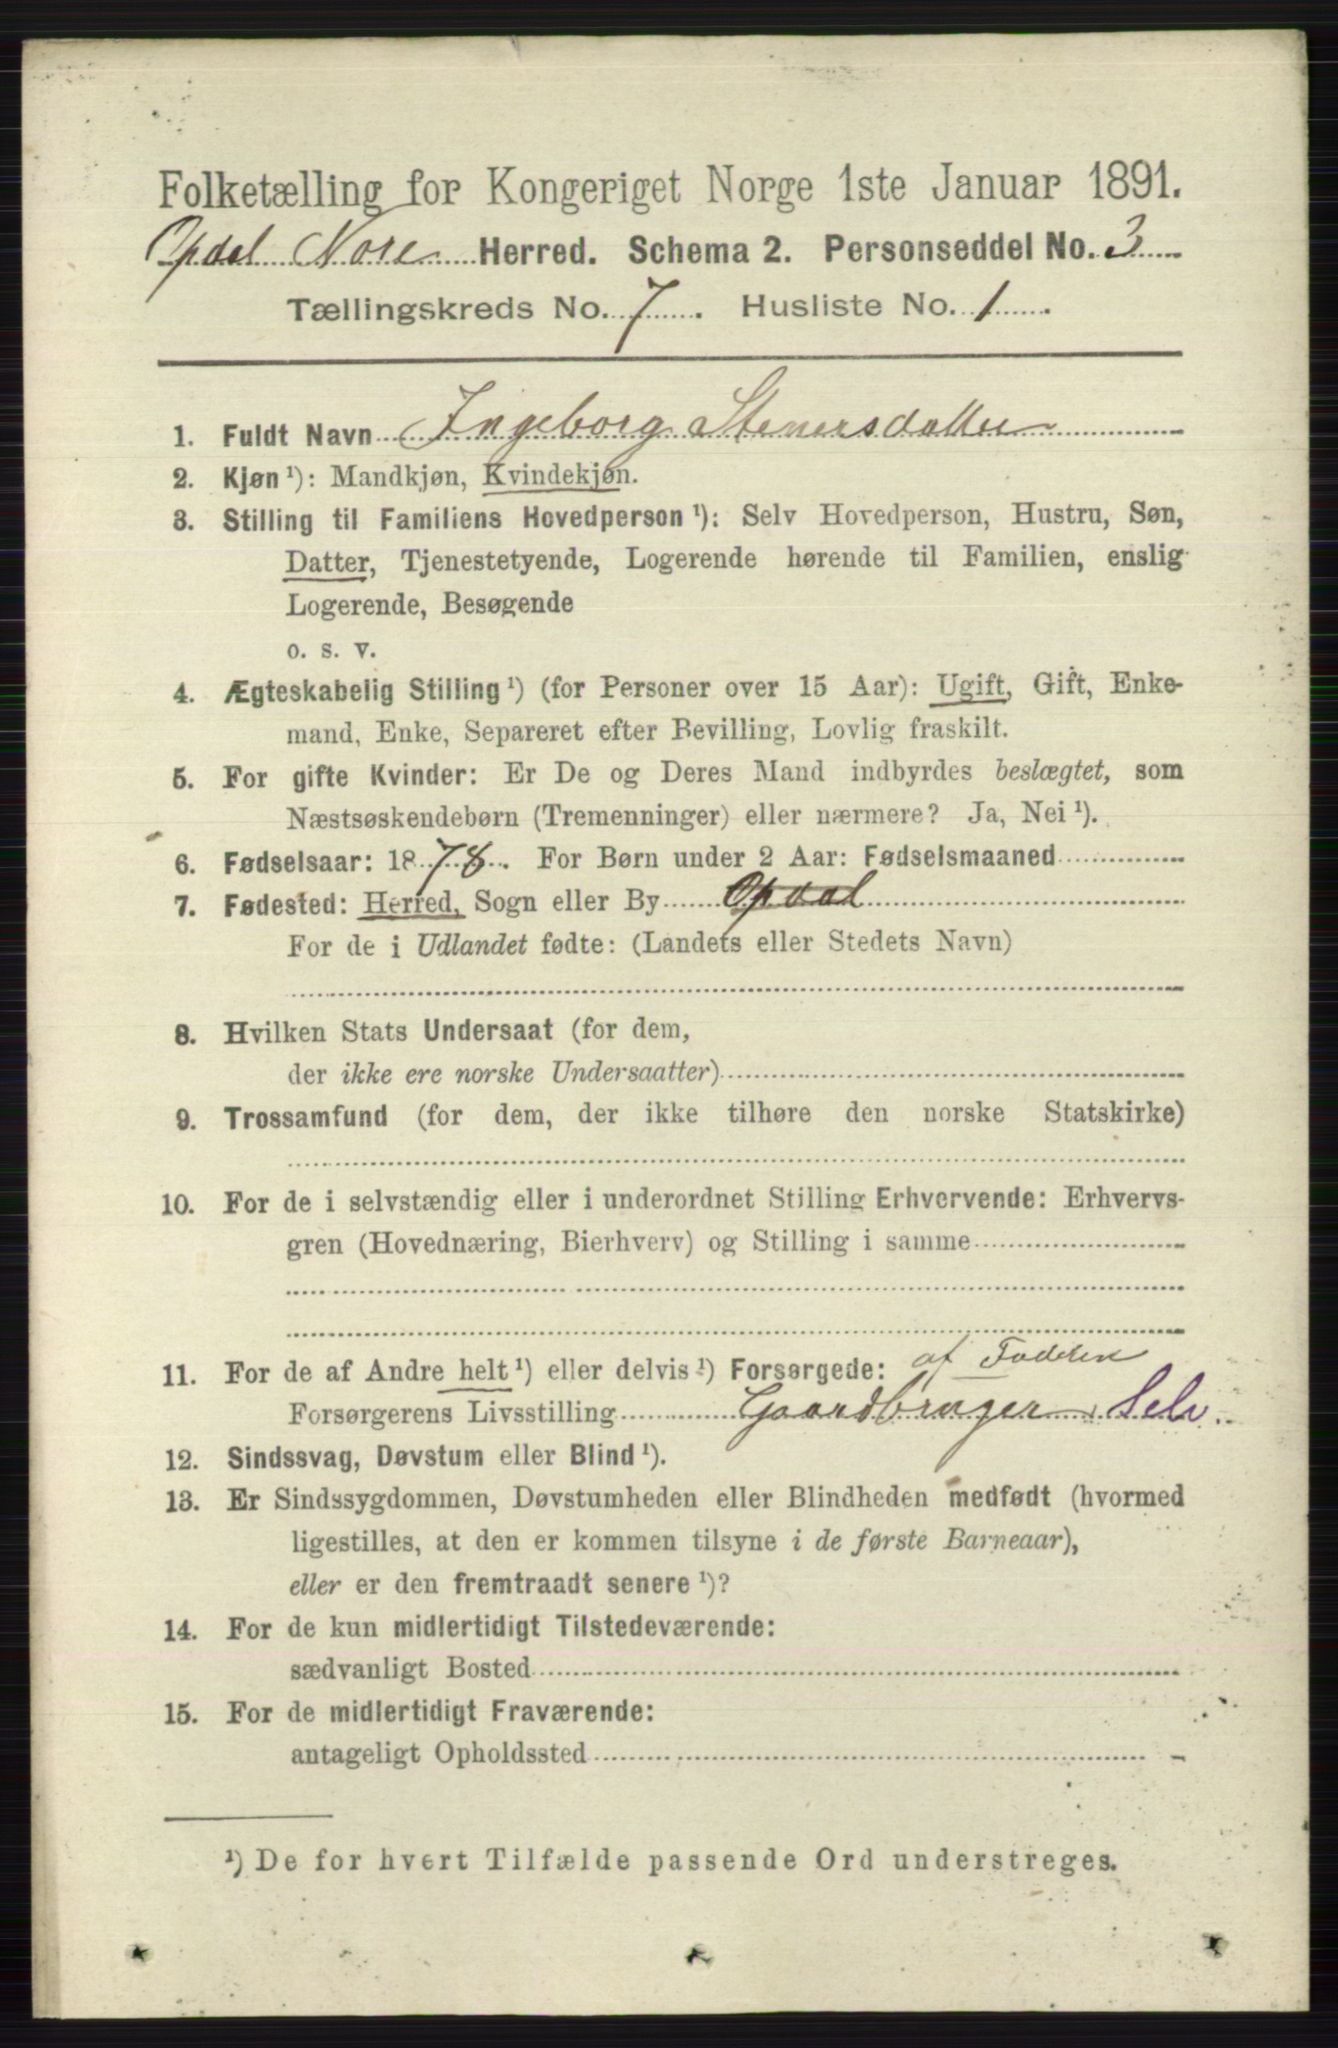 Folketælling for Kongeriget Norge 1ste Januar 1891.
Opdal Nore Herred. Schema 2. Personseddel No. 3
Tællingskreds No. 7. Husliste No. 1.
1. Fuldt Navn Ingeborg Stenersdatter
2. Kjøn ¹): Mandkjøn, Kvindekjøn.
3. Stilling til Familiens Hovedperson ¹): Selv Hovedperson, Hustru, Søn,
Datter, Tjenestetyende, Logerende hørende til Familien, enslig
Logerende, Besøgende
o. s. v.
4. Ægteskabelig Stilling ¹) (for Personer over 15 Aar): Ugift, Gift, Enke-
mand, Enke, Separeret efter Bevilling, Lovlig fraskilt.
5. For gifte Kvinder: Er De og Deres Mand indbyrdes beslægtet, som
Næstsøskendebørn (Tremenninger) eller nærmere? Ja, Nei ¹).
6. Fødselsaar: 1878. For Børn under 2 Aar: Fødselsmaaned
7. Fødested: Herred, Sogn eller By Opdal
For de i Udlandet fødte: (Landets eller Stedets Navn)
8. Hvilken Stats Undersaat (for dem,
der ikke ere norske Undersaatter)
9. Trossamfund (for dem, der ikke tilhøre den norske Statskirke)
10. For de i selvstændig eller i underordnet Stilling Erhvervende: Erhvervs-
gren (Hovednæring, Bierhverv) og Stilling i samme
11. For de af Andre helt ¹) eller delvis ¹) Forsørgede: af Fadder
Forsørgerens Livsstilling Gaardbruger, Selv.
12. Sindssvag, Døvstum eller Blind ¹).
13. Er Sindssygdommen, Døvstumheden eller Blindheden medfødt (hvormed
ligestilles, at den er kommen tilsyne i de første Barneaar),
eller er den fremtraadt senere ¹)?
14. For de kun midlertidigt Tilstedeværende:
sædvanligt Bosted
15. For de midlertidigt Fraværende:
antageligt Opholdssted
¹) De for hvert Tilfælde passende Ord understreges.